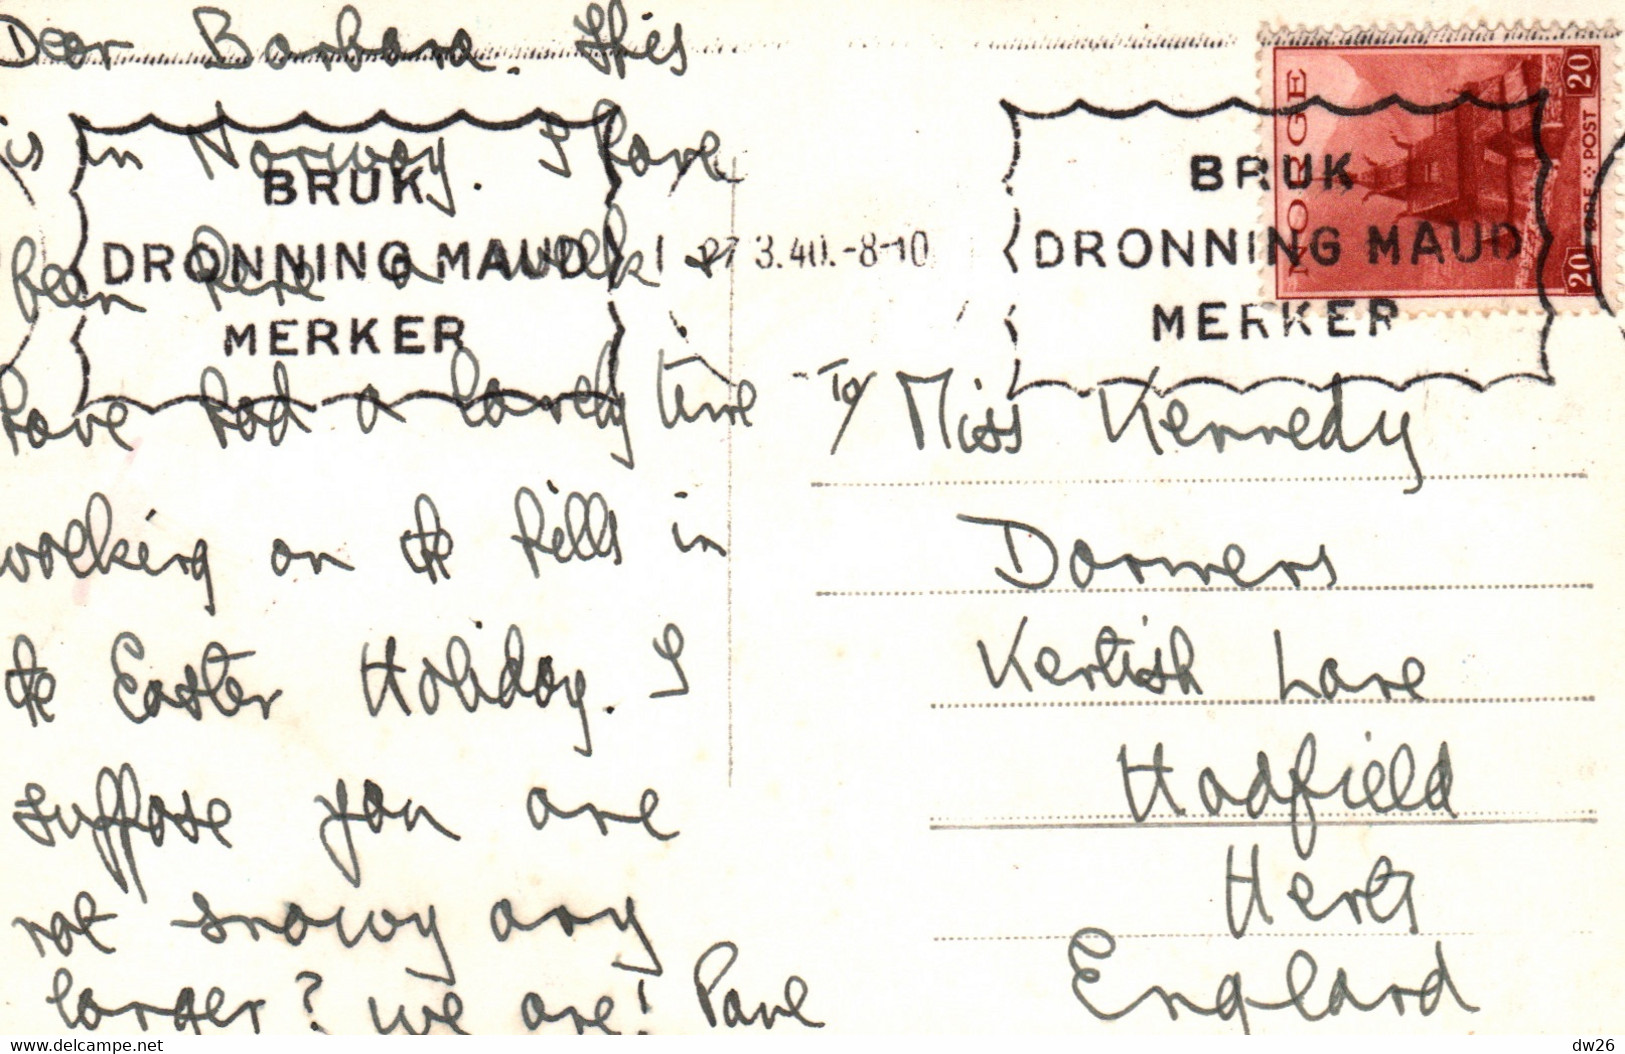 Dear Barbara. This
is in Norway. I have
been here a week &
have had a lovely time
walking on the hills in
the Easter Holiday. I
suppose you are
not snowy any
longer? we are!
BRUK
DRONNING MAUD
MERKER
27 3.40.-8-10
BRUK
DRONNING MAUD
MERKER
NORGE
20 ØRE POST 20
To/ Miss Kennedy
Dormers
Kentish Lane
Hadfield
Herts
England
delcampe.net
dw26